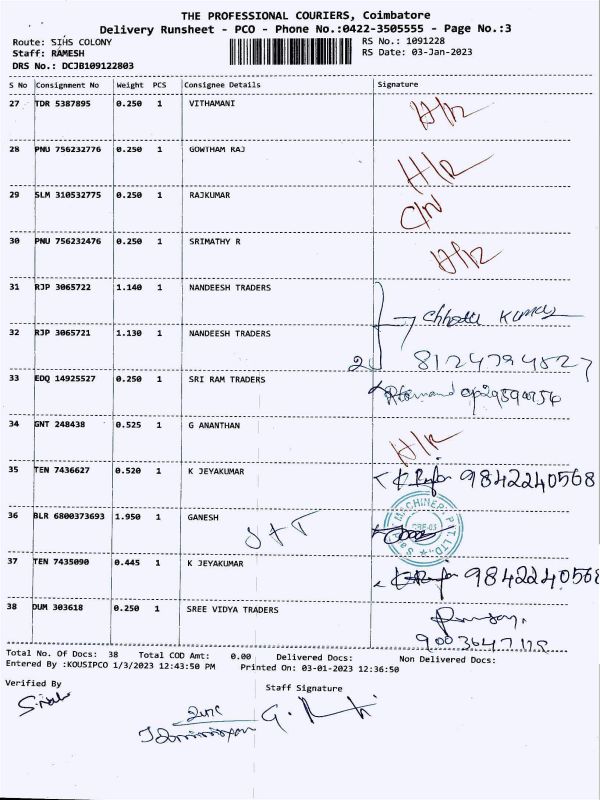 THE PROFESSIONAL COURIERS, Coimbatore
Delivery Runsheet - PCO - Phone No.:0422-3505555 - Page No.:3
Route: SIHS COLONY RS No.: 1091228
Staff: RAMESH RS Date: 03-Jan-2023
DRS No.: DCJB109122803
S No Consignment No Weight PCS Consignee Details Signature
27 TDR 5387895 0.250 1 VITHAMANI H/R
28 PNU 756232776 0.250 1 GOWTHAM RAJ H/R
29 SLM 310532775 0.250 1 RAJKUMAR C/N
30 PNU 756232476 0.250 1 SRIMATHY R H/R
31 RJP 3065722 1.140 1 NANDEESH TRADERS Chhotu Kumar
32 RJP 3065721 1.130 1 NANDEESH TRADERS 2 8124794527
33 EDQ 14925527 0.250 1 SRI RAM TRADERS
34 GNT 248438 0.525 1 G ANANTHAN H/R
35 TEN 7436627 0.520 1 K JEYAKUMAR 9842240568
36 BLR 6800373693 1.950 1 GANESH MACHINERY PVT. LTD. CBE-03
37 TEN 7435090 0.445 1 K JEYAKUMAR 9842240568
38 DUM 303618 0.250 1 SREE VIDYA TRADERS
Total No. Of Docs: 38 Total COD Amt: 0.00 Delivered Docs: Non Delivered Docs:
Entered By :KOUSIPCO 1/3/2023 12:43:50 PM Printed On: 03-01-2023 12:36:50
Verified By Staff Signature